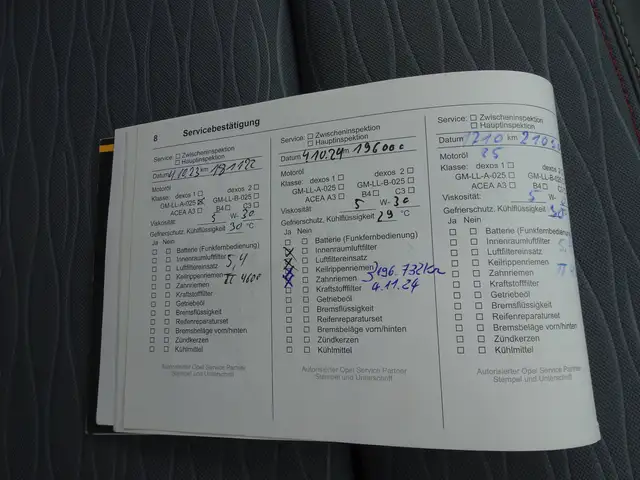 8 Servicebestätigung
Service: Zwischeninspektion
Hauptinspektion
Datum km
Motoröl
Klasse: dexos 1 dexos 2
GM-LL-A-025 GM-LL-B-025
ACEA A3 B4 C3
Viskosität: 5 W- 30
Gefrierschutz, Kühlflüssigkeit 30 °C
Ja Nein
Batterie (Funkfernbedienung)
Innenraumluftfilter
Luftfiltereinsatz 5,4
Keilrippenriemen
Zahnriemen
Kraftstofffilter
Getriebeöl
Bremsflüssigkeit
Reifenreparaturset
Bremsbeläge vorn/hinten
Zündkerzen
Kühlmittel
Autorisierter Opel Service Partner
Stempel und Unterschrift
Service: Zwischeninspektion
Hauptinspektion
Datum 4.10.24 km 196000
Motoröl
Klasse: dexos 1 dexos 2
GM-LL-A-025 GM-LL-B-025
ACEA A3 B4 C3
Viskosität: 5 W- 30
Gefrierschutz, Kühlflüssigkeit 29 °C
Ja Nein
Batterie (Funkfernbedienung)
Innenraumluftfilter
Luftfiltereinsatz
Keilrippenriemen
Zahnriemen 196.732km
Kraftstofffilter 4.11.24
Getriebeöl
Bremsflüssigkeit
Reifenreparaturset
Bremsbeläge vorn/hinten
Zündkerzen
Kühlmittel
Autorisierter Opel Service Partner
Stempel und Unterschrift
Service: Zwischeninspektion
Hauptinspektion
Datum 1210 km
Motoröl
Klasse: dexos 1 dexos 2
GM-LL-A-025 GM-LL-B-025
ACEA A3 B4 C3
Viskosität: 5 W- 30
Gefrierschutz, Kühlflüssigkeit 30
Ja Nein
Batterie (Funkfernbedienung)
Innenraumluftfilter
Luftfiltereinsatz
Keilrippenriemen
Zahnriemen
Kraftstofffilter
Getriebeöl
Bremsflüssigkeit
Reifenreparaturset
Bremsbeläge vorn/hinten
Zündkerzen
Kühlmittel
Autorisierter Opel Service Partner
Stempel und Unterschrift